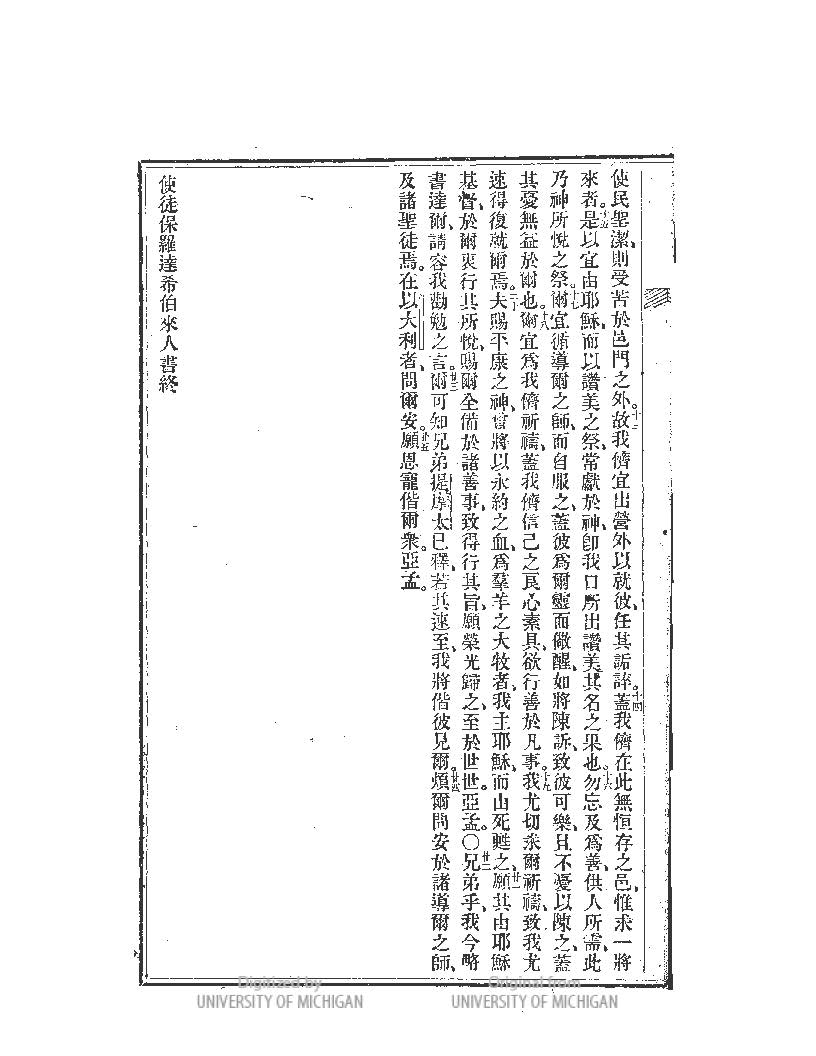 使民聖潔、則受苦於邑門之外。十三故我儕宜出營外以就彼、任其詬誶。十四蓋我儕在此無恒存之邑、惟求一將
來者。十五是以宜由耶穌、而以讚美之祭、常獻於神、卽我口所出讚美其名之果也。十六勿忘及爲善、供人所需、此
乃神所悅之祭。十七爾宜循導爾之師、而自服之、蓋彼爲爾靈而儆醒、如將陳訴、致彼可樂、且不憂以陳之、蓋
其憂無益於爾也。十八爾宜爲我儕祈禱、蓋我儕信己之良心素具、欲行善於凡事。十九我尤切求爾祈禱、致我尤
速得復就爾焉。二十夫賜平康之神、曾將以永約之血、爲羣羊之大牧者、我主耶穌、而由死甦之、廿一願其由耶穌
基督、於爾衷行其所悅、賜爾全備於諸善事、致得行其旨、願榮光歸之、至於世世。亞孟。〇廿二兄弟乎、我今略
書達爾、請容我勸勉之言。廿三爾可知兄弟提摩太已釋、若其速至、我將偕彼見爾。廿四煩爾問安於諸導爾之師、
及諸聖徒焉。在以大利者、問爾安。廿五願恩寵偕爾衆。亞孟。
使徒保羅達希伯來人書終
Digitized by
UNIVERSITY OF MICHIGAN
Original from
UNIVERSITY OF MICHIGAN